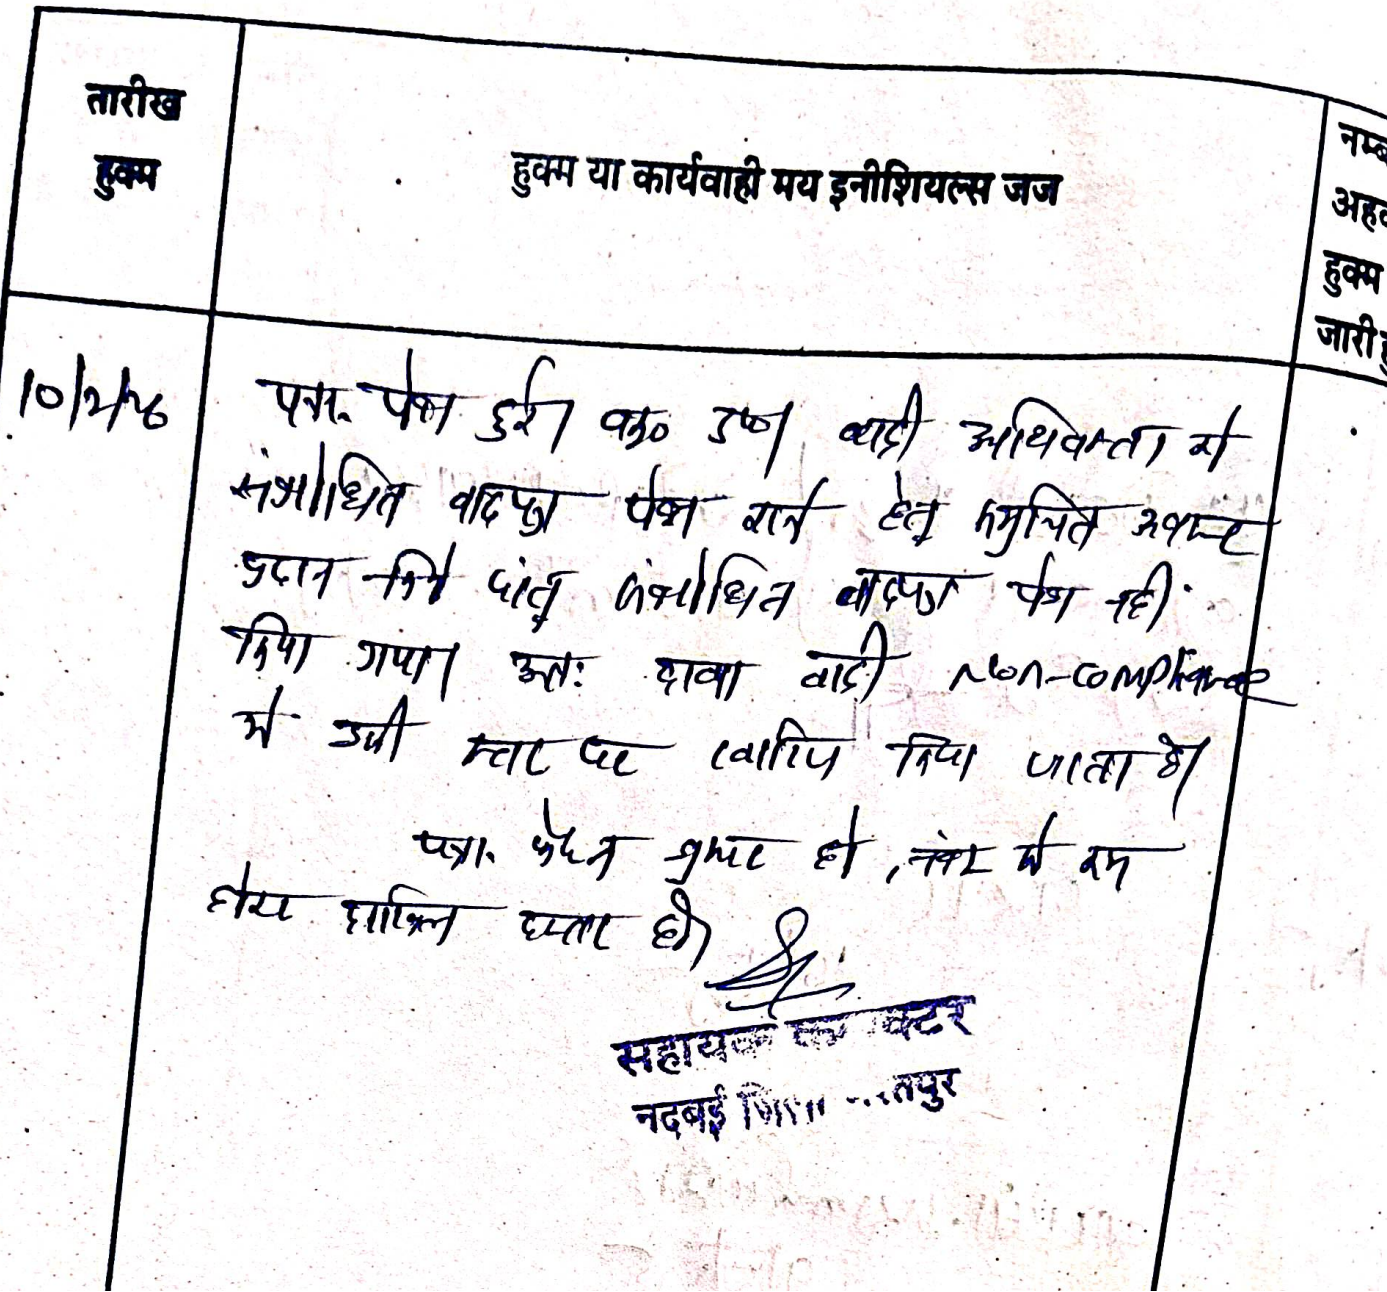 तारीख
हुक्म
हुक्म या कार्यवाही मय इनीशियल्स जज
हुक्म
जारी
10/2/26
पत्रा. पेश हुई। वकी० उप०। वादी अधिवक्ता को
संशोधित वादपत्र पेश करने हेतु समुचित अवसर
प्रदान किये परंतु संशोधित वादपत्र पेश नहीं
किया गया। अतः दावा वादी non-compliance
में इसी स्तर पर खारिज किया जाता है।
पत्रा. फैसल शुमार हो, नंबर से कम
होकर दाखिल दफ्तर हो।
सहायक कलक्टर
नदबई जिला भरतपुर